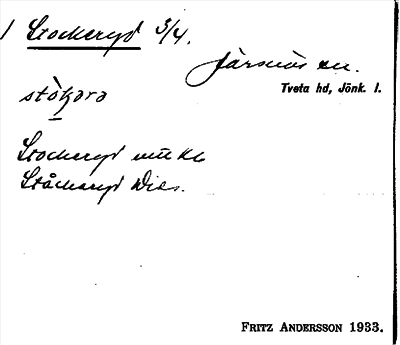 1 Stockeryd 3/4.
Järsnäs sn.
Tveta hd, Jönk. l.
stòkərə
Stockeryd
Ståckeryd Dies.
FRITZ ANDERSSON 1933.